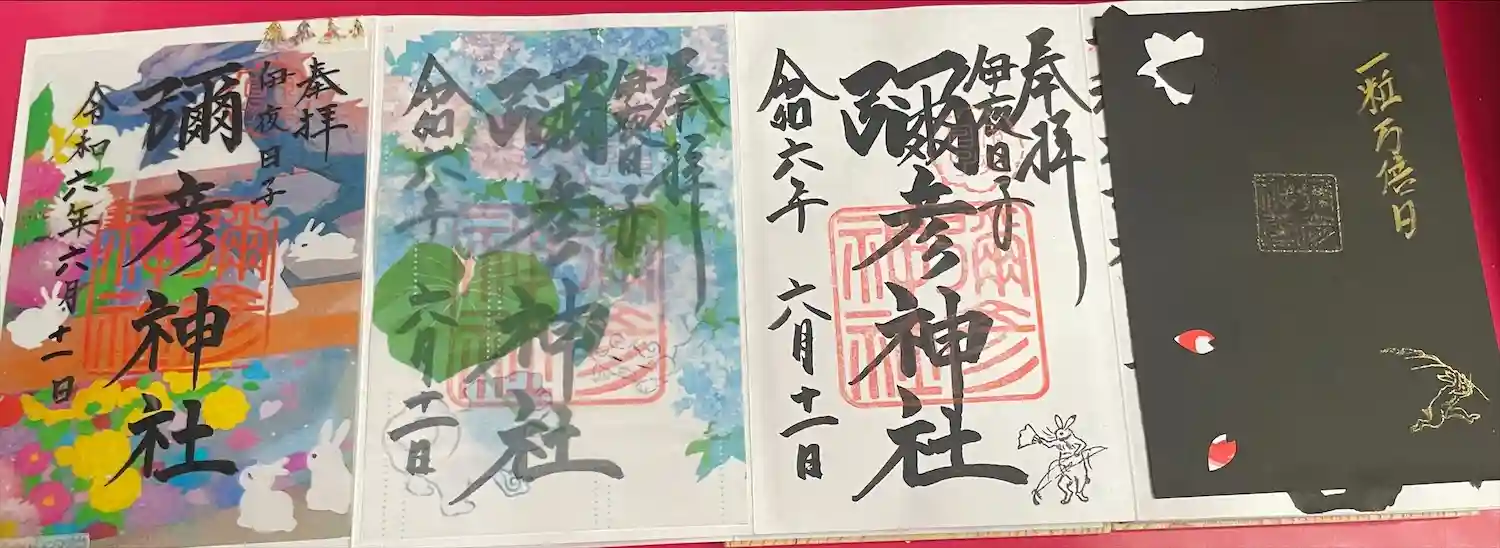 奉拝
伊夜日子
彌彦神社
令和六年六月十一日
奉拝
伊夜日子
彌彦神社
令和六年 六月十一日
奉拝
伊夜日子
彌彦神社
令和六年 六月十一日
一粒万倍日